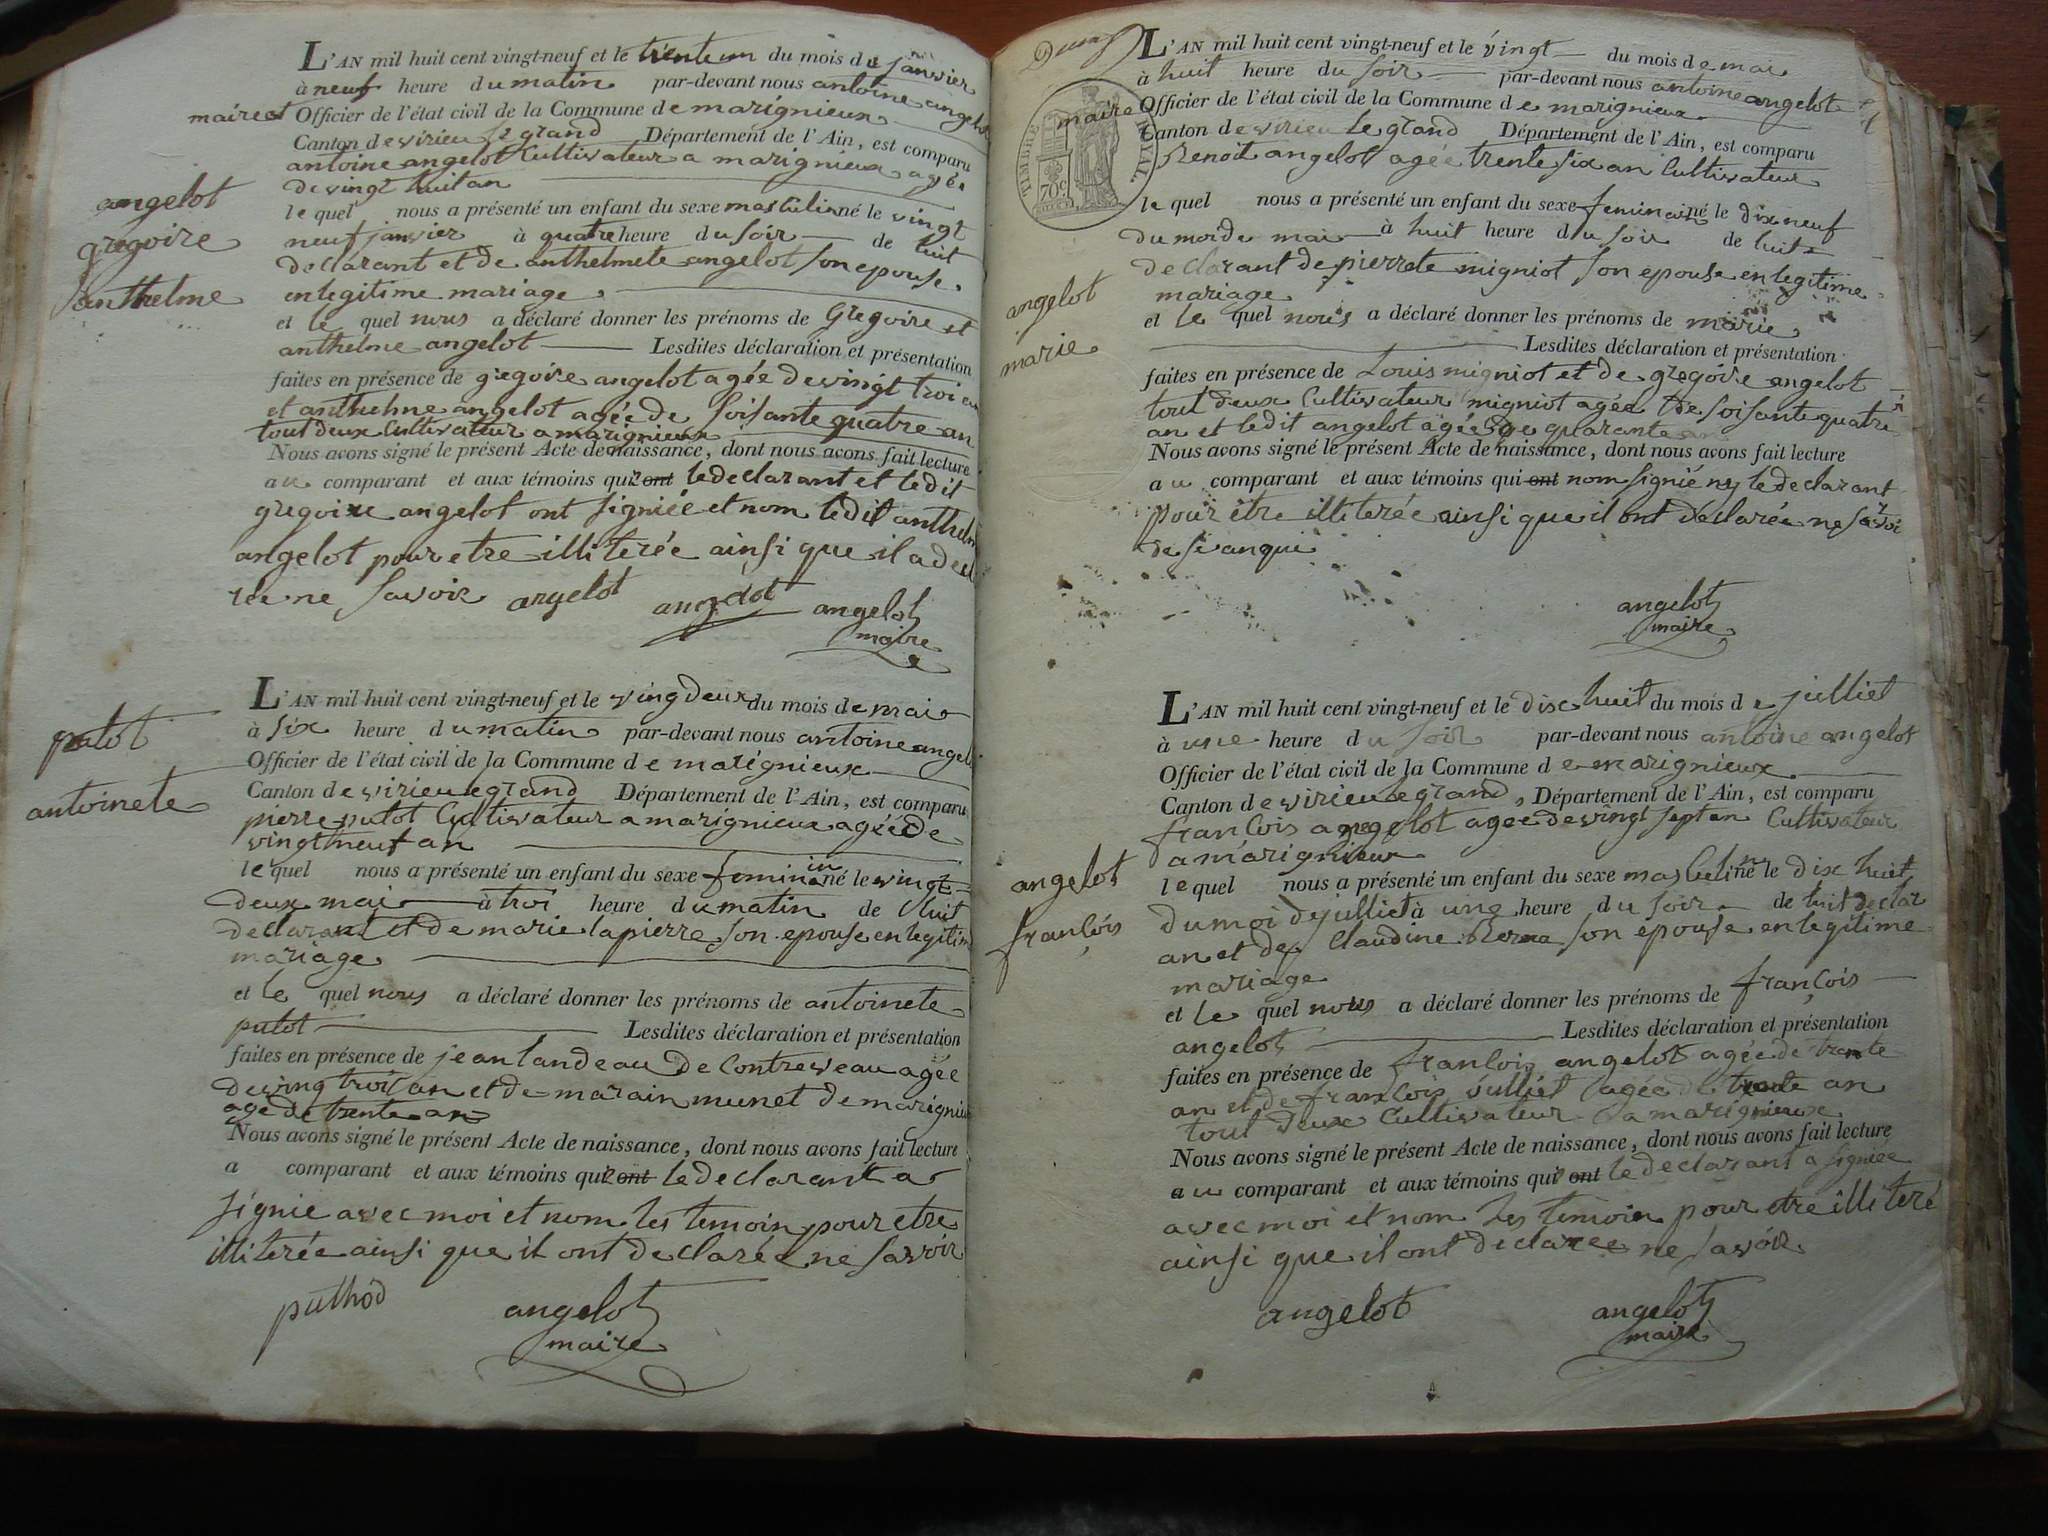 angelot
gregoire
anthelme
L'AN mil huit cent vingt-neuf et le trente un du mois de janvier
à neuf heure du matin par-devant nous antoine angelot
maire et Officier de l'état civil de la Commune de marignieux
Canton de virieu le grand Département de l'Ain, est comparu
antoine angelot Cultivateur a marignieux agée
de vingt huit an
le quel nous a présenté un enfant du sexe masculin né le vingt
neuf janvier à quatre heure du soir de luit
declarant et de anthelmete angelot son epouse
en legitime mariage
et le quel nous a déclaré donner les prénoms de Gregoire et
anthelme angelot Lesdites déclaration et présentation
faites en présence de gregoire angelot agée de vingt troi an
et anthelme angelot agée de soisante quatre an
tout deux Cultivateur a marignieux
Nous avons signé le présent Acte de naissance, dont nous avons fait lecture
au comparant et aux témoins qui ont le declarant et ledit
gregoire angelot ont signiée et nom ledit anthelme
angelot pour etre illiterée ainsi que il a decla
rée ne savoir angelot angelot angelot
maire
putot
antoinete
L'AN mil huit cent vingt-neuf et le ving deux du mois de mai
à six heure du matin par-devant nous antoine angelot
Officier de l'état civil de la Commune de marignieux
Canton de virieu le grand Département de l'Ain, est comparu
pierre putot Cultivateur a marignieux agée de
vingt neuf an
le quel nous a présenté un enfant du sexe feminin né le vingt
deux mai à troi heure du matin de luit
declarant et de marie lapierre son epouse en legitime
mariage
et le quel nous a déclaré donner les prénoms de antoinete
putot Lesdites déclaration et présentation
faites en présence de jean landeau de Contreveau agée
de ving troi an et de marain munet de marignieux
age de trente an
Nous avons signé le présent Acte de naissance, dont nous avons fait lecture
a comparant et aux témoins qui ont le declarant a
signie avec moi et nom les temoin pour etre
illiterée ainsi que il ont declarée ne savoir
puthod angelot
maire
TIMBRE ROYAL
70c
angelot
marie
L'AN mil huit cent vingt-neuf et le vingt du mois de mai
à huit heure du soir par-devant nous antoine angelot
maire Officier de l'état civil de la Commune de marignieux
Canton de virieu le grand Département de l'Ain, est comparu
Benoit angelot agée trente six an Cultivateur
le quel nous a présenté un enfant du sexe feminin né le dix neuf
du moi de mai à huit heure du soir de luit
declarant de pierrete migniot son epouse en legitime
mariage
et le quel nous a déclaré donner les prénoms de marie
Lesdites déclaration et présentation
faites en présence de Louis migniot et de gregoire angelot
tout deux Cultivateur migniot agée de soisante quatre
an et ledit angelot agée de quarante an
Nous avons signé le présent Acte de naissance, dont nous avons fait lecture
au comparant et aux témoins qui ont nom signié ny le declarant
pour être illiterée ainsi que il ont declarée ne savoir
de se anqui
angelot
maire
angelot
françois
L'AN mil huit cent vingt-neuf et le dix huit du mois de julliet
à une heure du soir par-devant nous antoine angelot
Officier de l'état civil de la Commune de marignieux
Canton de virieu le grand, Département de l'Ain, est comparu
françois angelot agée de vingt sept an Cultivateur
a marignieux
le quel nous a présenté un enfant du sexe masculin né le dix huit
du moi de julliet à une heure du soir de luit declar
an et de Claudine son epouse en legitime
mariage
et le quel nous a déclaré donner les prénoms de françois
angelot Lesdites déclaration et présentation
faites en présence de françois angelot agée de trente
an et de françois vulliet agée de trente an
tout deux Cultivateur a marignieux
Nous avons signé le présent Acte de naissance, dont nous avons fait lecture
au comparant et aux témoins qui ont le declarant a signiée
avec moi et nom les temoin pour etre illiteré
ainsi que il ont declarée ne savoir
angelot angelot
maire